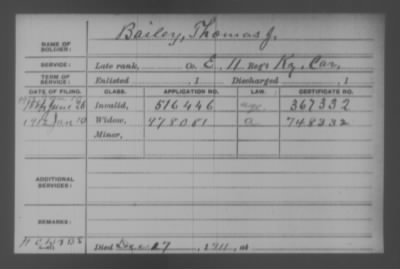 NAME OF SOLDIER: Bailey, Thomas J.
SERVICE: Late rank, Co. E, 11 Reg't Ky. Cav.
TERM OF SERVICE: Enlisted , 1 Discharged , 1
DATE OF FILING. CLASS. APPLICATION NO. LAW. CERTIFICATE NO.
June 26 Invalid, 516446 age 367332
1912 Jan 10 Widow, 978081 a 748232
Minor,
ADDITIONAL SERVICES:
REMARKS:
Died Dec 27, 1911, at